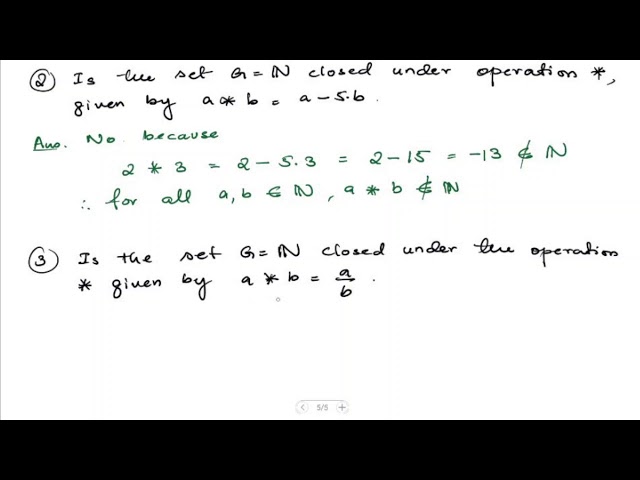 ② Is the set G = ℕ closed under operation *,
given by a * b = a - 5.b.
Ans. No because
2 * 3 = 2 - 5.3 = 2 - 15 = -13 ∉ ℕ
∴ for all a, b ∈ ℕ, a * b ∉ ℕ
③ Is the set G = ℕ closed under the operation
* given by a * b = a/b.
5/5